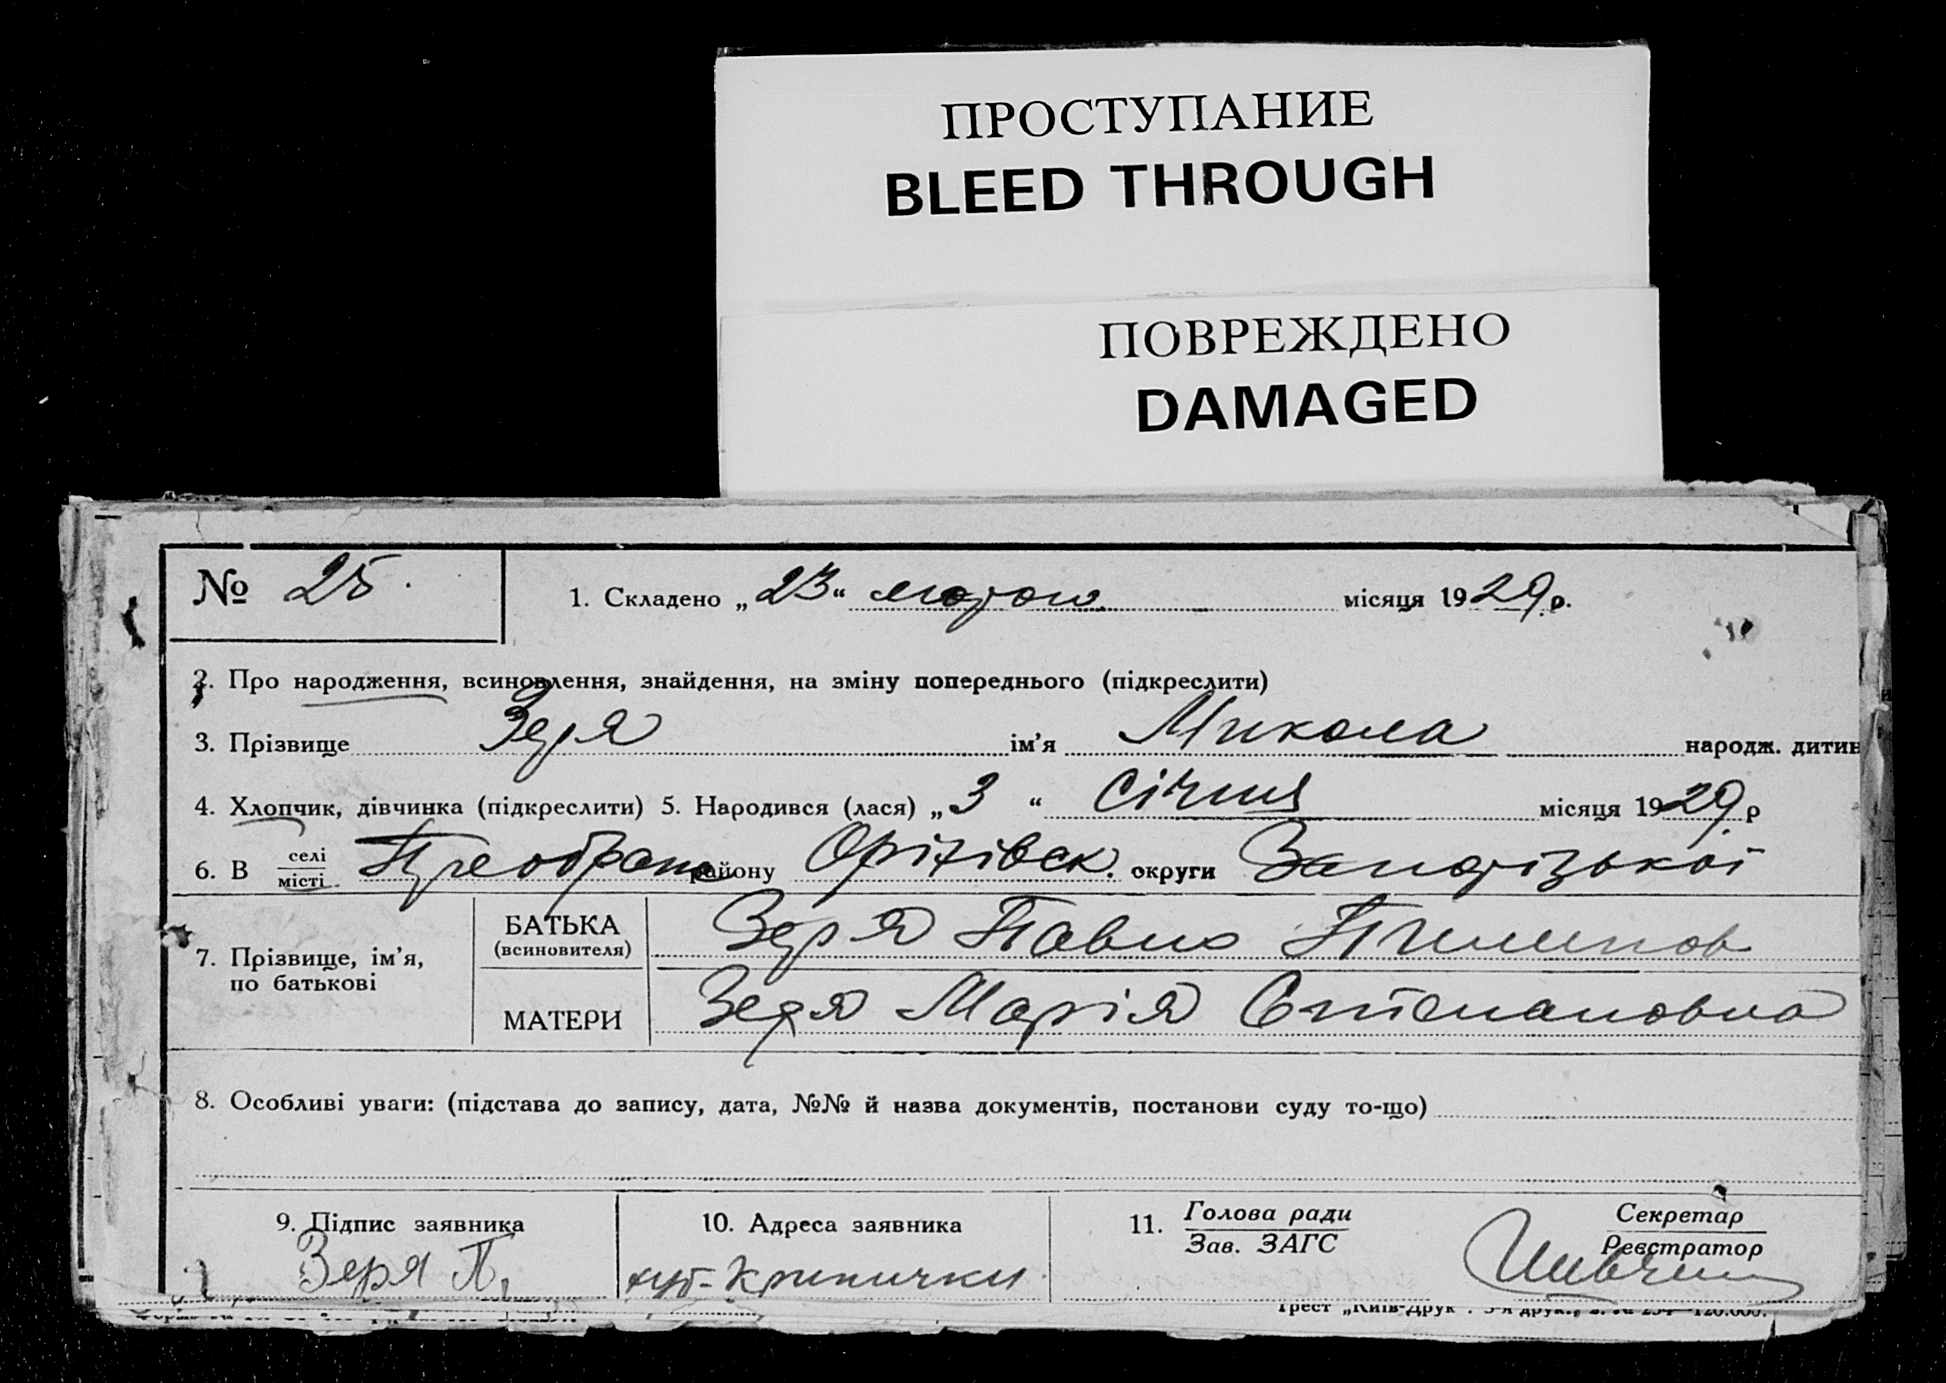 ПРОСТУПАНИЕ
BLEED THROUGH
ПОВРЕЖДЕНО
DAMAGED
№ 25.
1. Складено „23“ лютого місяця 1929 р.
2. Про народження, всиновлення, знайдення, на зміну попереднього (підкреслити)
3. Прізвище Зеря ім’я Микола народж. дитин
4. Хлопчик, дівчинка (підкреслити) 5. Народився (лася) „3“ Січня місяця 1929 р
6. В селі місті Преображе району Оріхівськ. округи Запорізької
7. Прізвище, ім’я, по батькові
БАТЬКА (всиновителя) Зеря Павло Пилипов
МАТЕРИ Зеря Марія Степановна
8. Особливі уваги: (підстава до запису, дата, №№ й назва документів, постанови суду то-що)
9. Підпис заявника 10. Адреса заявника 11. Голова ради Зав. ЗАГС Секретар Реєстратор
Зеря П. хут-Кринички
Трест „Київ-Друк“.